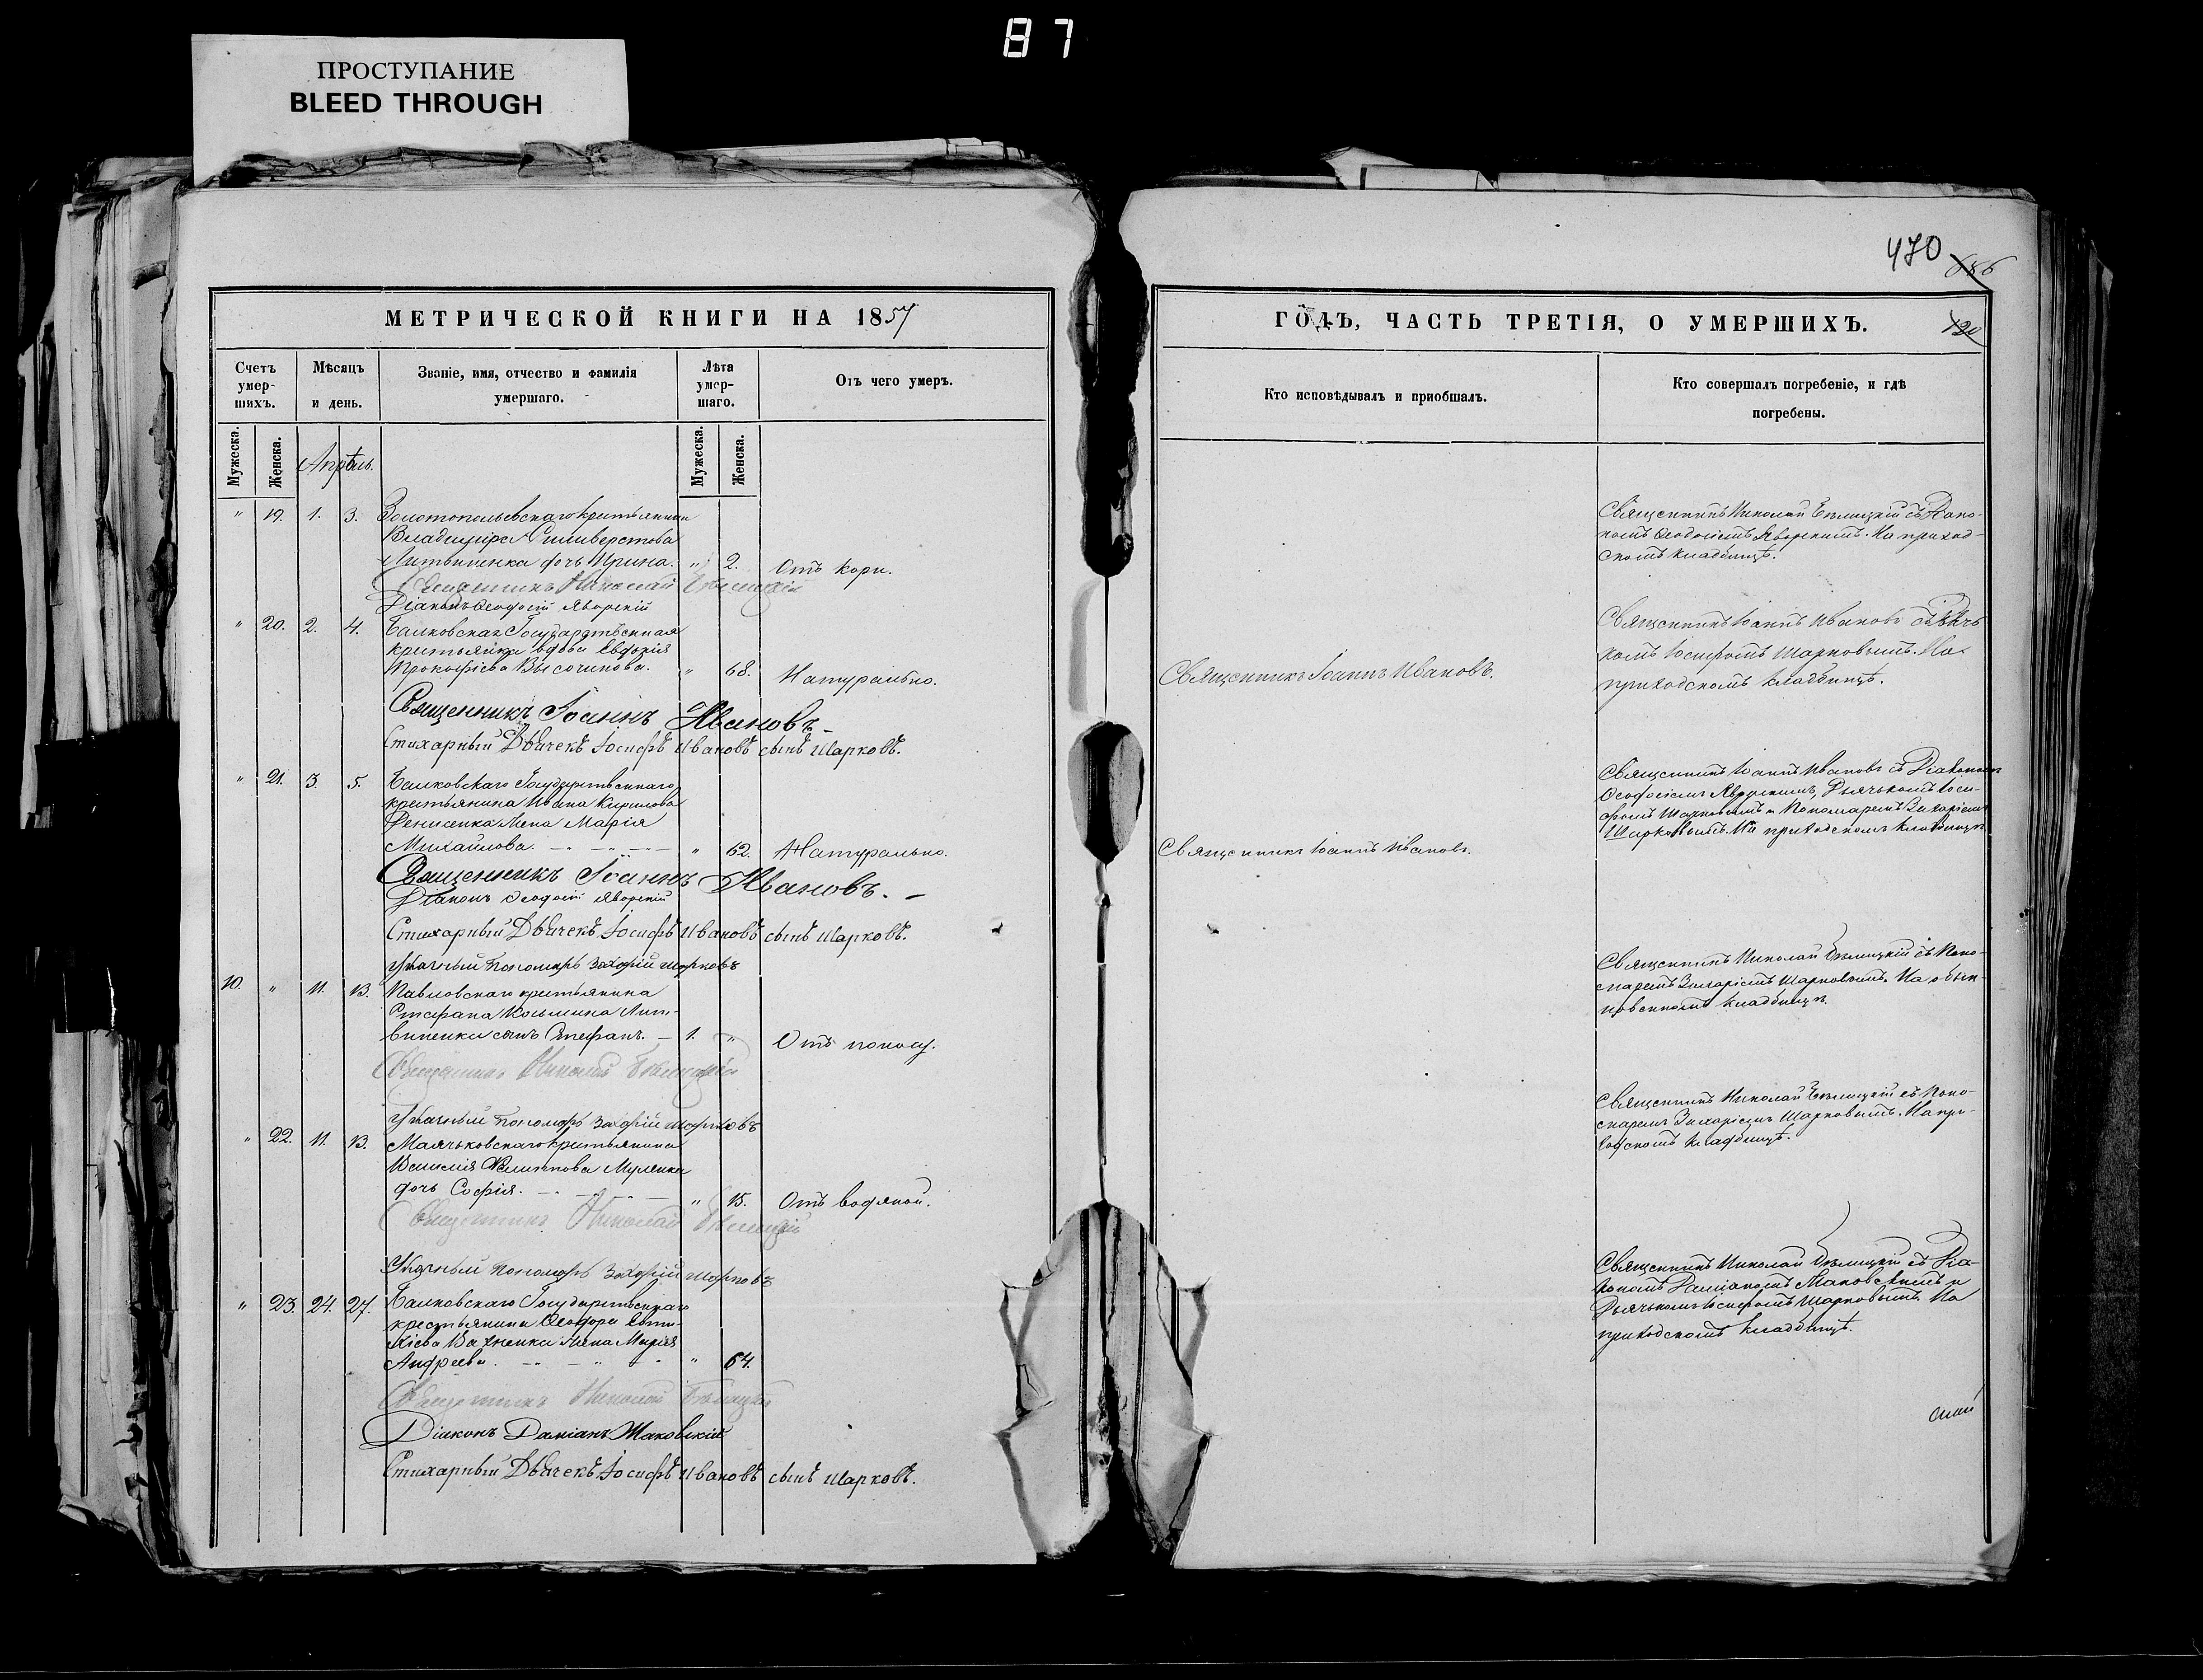 87
ПРОСТУПАНИЕ
BLEED THROUGH
470
686
120
МЕТРИЧЕСКОЙ КНИГИ НА 1857
Счетъ умер-шихъ.
Мѣсяцъ и день.
Званіе, имя, отчество и фамилія умершаго.
Лѣта умер-шаго.
Отъ чего умеръ.
Мужеска.
Женска.
Апрѣль.
Мужеска.
Женска.
" 19. 1. 3. Золотопольевскаго крестьянина
Владимира Силиверстова
Литвиненка дочь Ирина. " 2. Отъ кори.
Священникъ Николай Бѣлицкій
Діаконъ Ѳеодосій Яворскій
" 20. 2. 4. Балковская Государственная
крестьянка вдова Евдокія
Прокофіева Высочинова. " 68. Натурально.
Священникъ Іоаннъ Ивановъ
Стихарный Дьячекъ Іосифъ Ивановъ сынъ Шарковъ.
" 21. 3. 5. Балковскаго Государственнаго
крестьянина Ивана Кирилова
Денисенка жена Марія
Михайлова. " 62. Натурально.
Священникъ Іоаннъ Ивановъ.
Діаконъ Ѳеодосій Яворскій
Стихарный Дьячекъ Іосифъ Ивановъ сынъ Шарковъ.
Указный Пономарь Захарій Шарковъ
10. " 11. 13. Павловскаго крестьянина
Стефана Козьмина Лит-
виненки сынъ Стефанъ. 1. " Отъ поносу.
Священникъ Николай Бѣлицкій
Указный Пономарь Захарій Шарковъ
" 22. 11. 13. Маячьковскаго крестьянина
Василія Филиппова
дочь Софія. " 15. Отъ водяной.
Священникъ Николай Бѣлицкій
Указный Пономарь Захарій Шарковъ
" 23. 24. 27. Балковскаго Государственнаго
крестьянина Ѳеодора
жена Марія
Андреева. " 64.
Священникъ Николай Бѣлицкій
Діаконъ Даміанъ Маковскій
Стихарный Дьячекъ Іосифъ Ивановъ сынъ Шарковъ.
ГОДЪ, ЧАСТЬ ТРЕТІЯ, О УМЕРШИХЪ.
Кто исповѣдывалъ и приобшалъ.
Кто совершалъ погребеніе, и гдѣ
погребены.
Священникъ Николай Бѣлицкій съ Діако-
номъ Ѳеодосіемъ Яворскимъ. На приход-
скомъ кладбищѣ.
Священникъ Іоаннъ Ивановъ.
Священникъ Іоаннъ Ивановъ съ Дьяч-
комъ Іосифомъ Шарковымъ. На
приходскомъ кладбищѣ.
Священникъ Іоаннъ Ивановъ.
Священникъ Іоаннъ Ивановъ съ Діакономъ
Ѳеодосіемъ Яворскимъ, Дьячькомъ Іоси-
фомъ Шарковымъ и Пономаремъ Захаріемъ
Шарковымъ. На приходскомъ кладбищѣ.
Священникъ Николай Бѣлицкій съ Поно-
маремъ Захаріемъ Шарковымъ. На обык-
новенномъ кладбищѣ.
Священникъ Николай Бѣлицкій съ Поно-
маремъ Захаріемъ Шарковымъ. На при-
ходскомъ кладбищѣ.
Священникъ Николай Бѣлицкій съ Діа-
кономъ Даміаномъ Маковскимъ и
Дьячькомъ Іосифомъ Шарковымъ. На
приходскомъ кладбищѣ.